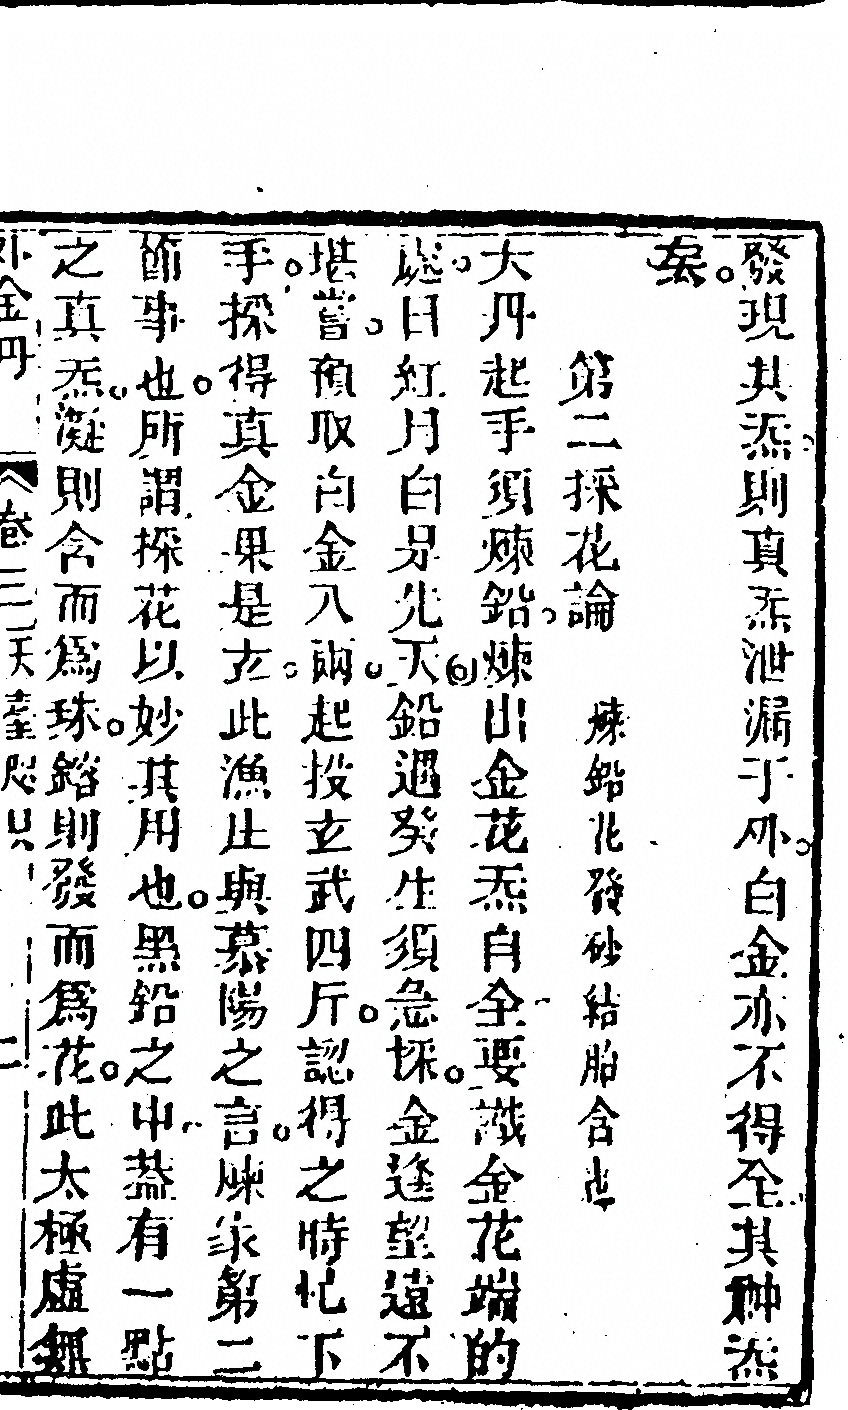 發現其炁則真炁泄漏于外白金亦不得全其神炁
矣
第二採花論 煉鉛花發砂結胎含
大丹起手須煉鉛煉出金花炁自全要識金花端的
處日紅月白是先天鉛遇癸生須急採金逢望遠不
堪嘗預取白金八兩起投玄武四斤認得之時忙下
手採得真金果是玄此漁庄與慕陽之言煉家第二
節事也所謂採花以妙其用也黑鉛之中葢有一點
之真炁凝則含而爲珠鎔則發而爲花此太極虛無
外金丹 卷二 天臺